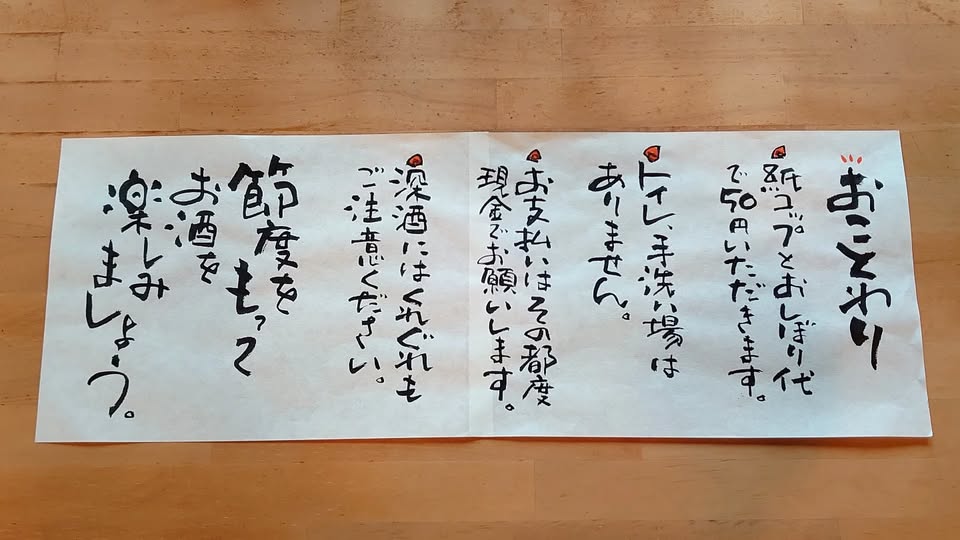 おことわり
紙コップとおしぼり代
で50円いただきます。
トイレ、手洗い場は
ありません。
お支払いはその都度
現金でお願いします。
深酒にはくれぐれも
ご注意ください。
節度を
もって
お酒を
楽しみ
ましょう。